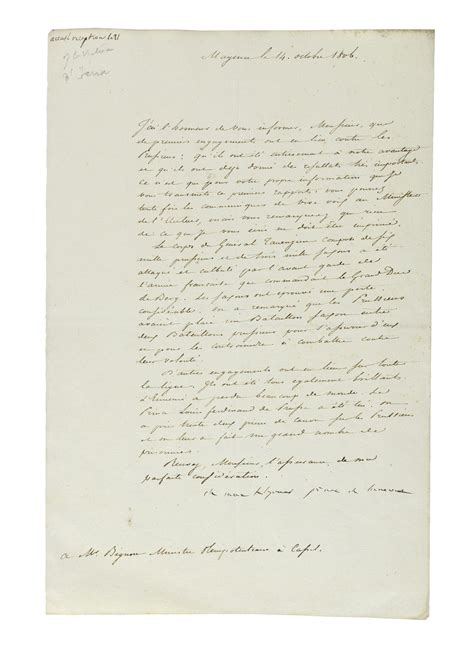 accusé réception le 21
Mayence le 14. octobre 1806.
J'ai l'honneur de vous informer, Monsieur, que
de premiers engagements ont eu lieu contre les
Prussiens: qu'ils ont été entierement à notre avantage
et qu'ils ont deja donné de resultats très importans.
ce n'est que pour votre propre information que je
vous transmets ce premier rapport: vous pouvez
toute fois les communiquer de vive voix au Ministère
de l'Electeur, mais vous remarquerez, que rien
de ce que je vous écris ne doit être imprimé.
Le corps du General Tauenzien composé de six
mille prussiens et de trois mille saxons a été
attaqué et culbuté par l'avant garde de
l'armée française que commandait le Grand Duc
de Berg. Les saxons ont éprouvé une perte
considérable. on a remarqué que les Prussiens
avaient placé un Bataillon saxon entre
deux Bataillons prussiens pour s'assurer d'eux
et pour les contraindre à combattre contre
leur volonté.
D'autres engagements ont eu lieu sur toute
la ligne. Ils ont été tous également brillants.
l'Ennemi a perdu beaucoup de monde. Le
Prince Louis ferdinand de Prusse a été tué. on
a pris trente deux pièces de canon sur les Prussiens
et on leur a fait un grand nombre de
prisonniers.
Recevez, Monsieur, l'assurance de ma
parfaite considération.
prince de Benevent
a Mr. Bignon Ministre Plenipotentiaire à Cassel.